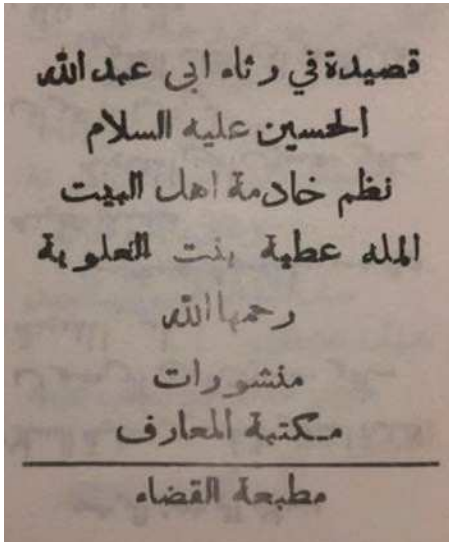 قصيدة في رثاء ابى عبد الله
الحسين عليه السلام
نظم خادمة اهل البيت
المله عطية بنت العلوية
رحمها الله
منشورات
مكتبة المعارف
مطبعة القضاء